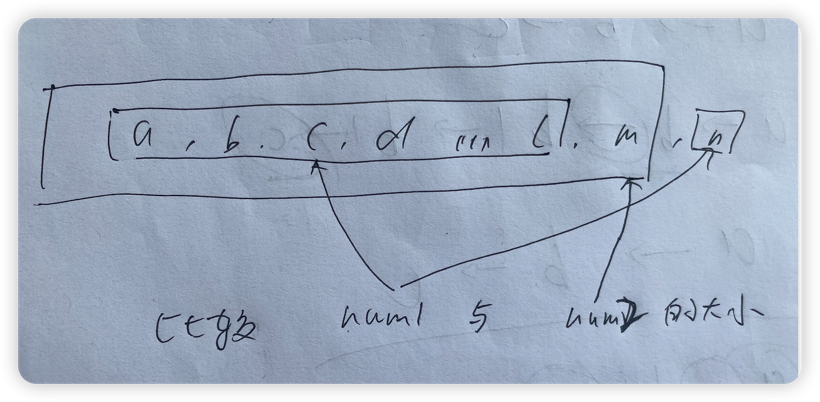 [a, b, c, d ... l], m, [n]
比较 num1 与 num2 的大小